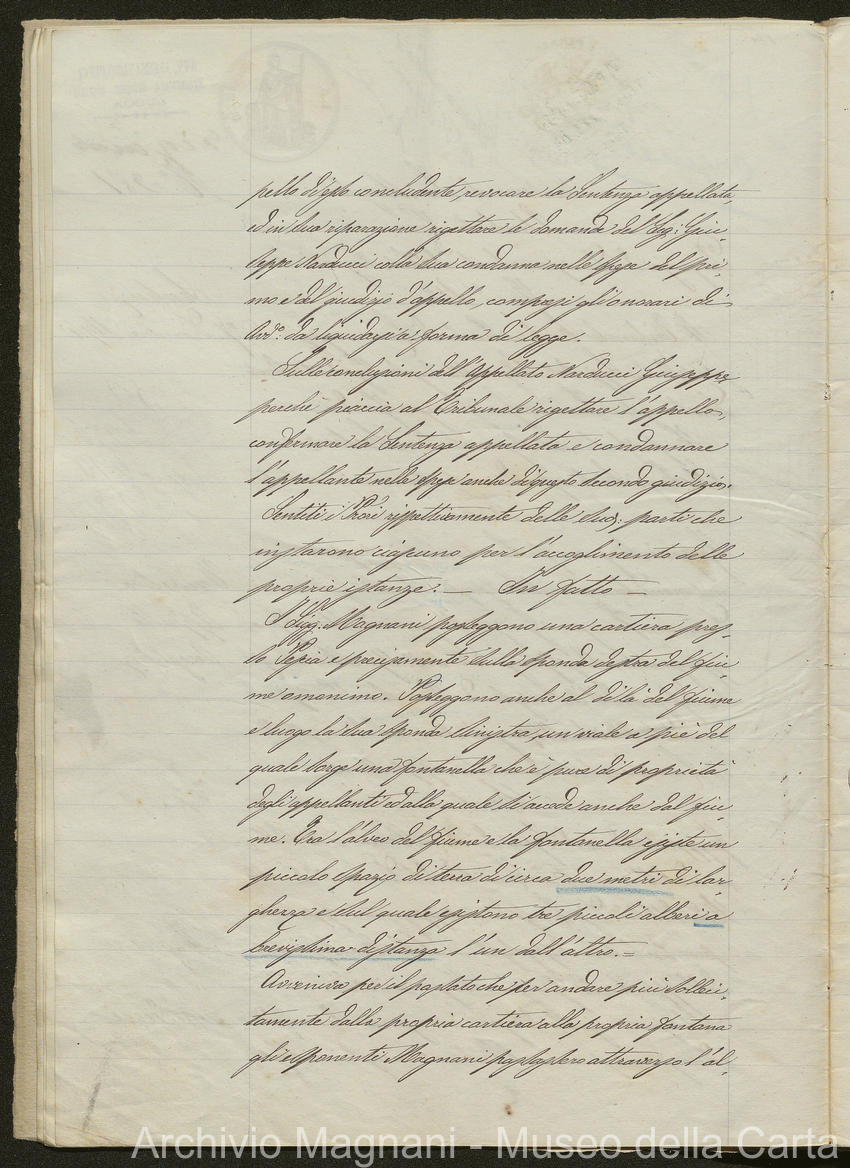 pello di esso concludente, revocare la Sentenza appellata
ed in sua riparazione rigettare le domande del Sig: Giu-
seppe Narducci colla sua condanna nelle spese del pri-
mo e del giudizio d'appello, compresi gli onorari di
Avv.º da liquidarsi a forma di legge.
Sulle conclusioni dell'Appellato Narducci Giuseppe
perchè piaccia al Tribunale rigettare l'appello,
confermare la Sentenza appellata e condannare
l'appellante nelle spese anche di questo secondo giudizio.
Sentiti i Prõri rispettivamente delle Sud: parti che
instarono ciascuno per l'accoglimento delle
proprie istanze. — In fatto —
I Sigg. Magnani posseggono una cartiera pres-
so Pescia e precisamente sulla sponda destra del fiu-
me omonimo. Posseggono anche al di là del fiume
e lungo la sua sponda sinistra un viale a piè del
quale sorge una fontanella che è pure di proprietà
degli appellanti ed alla quale si accede anche dal fiu-
me. Tra l'alveo del fiume e la fontanella esiste un
piccolo spazio di terra di circa due metri di lar-
ghezza e sul quale esistono tre piccoli alberi a
brevissima distanza l'un dall'altro. =
Avveniva per il passato che per andare più solleci-
tamente dalla propria cartiera alla propria fontana
gli esponenti Magnani passassero attraverso l'al-
Archivio Magnani - Museo della Carta